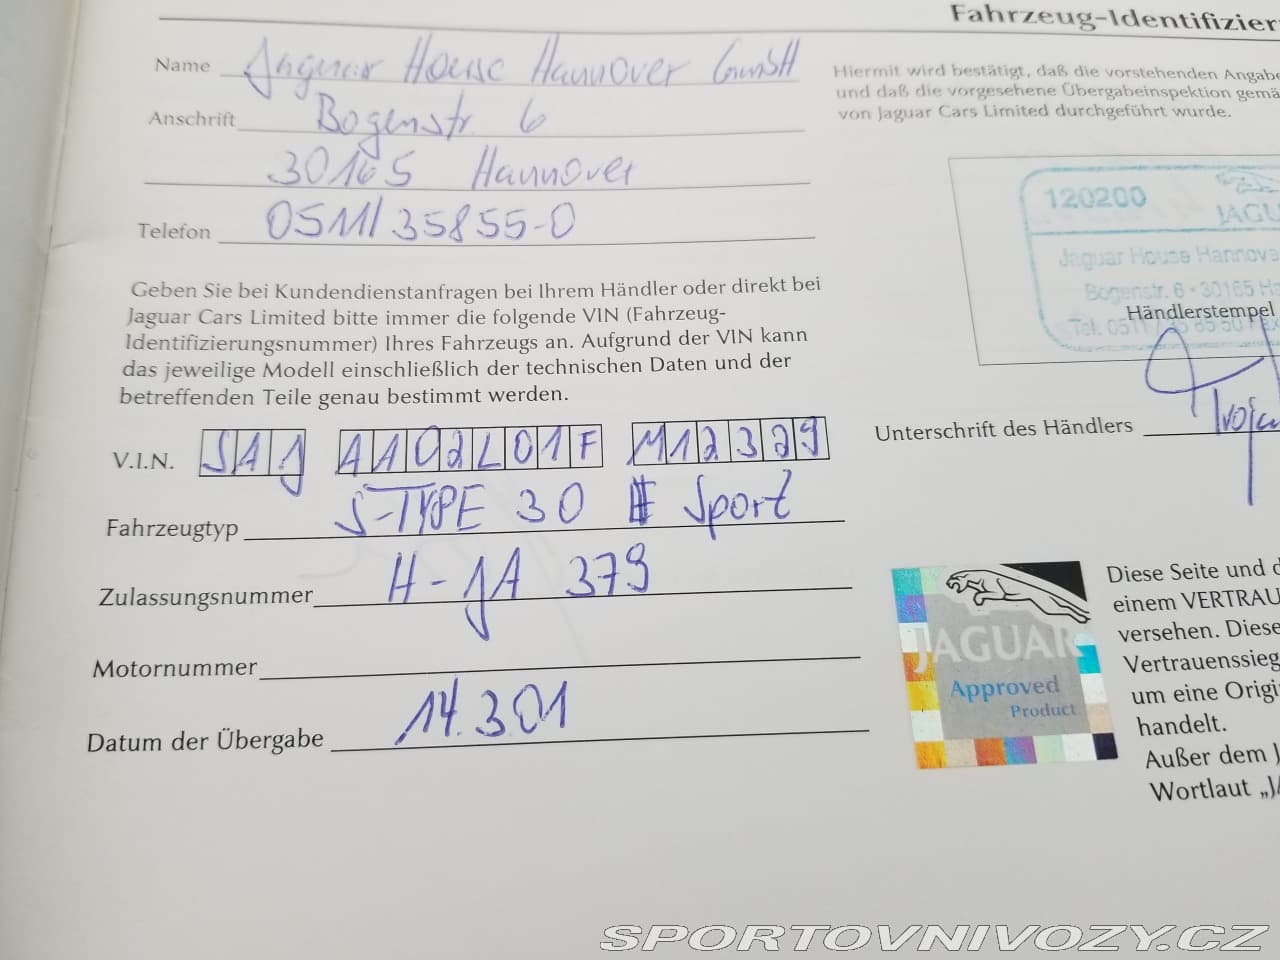 Fahrzeug-Identifizier
Name Jaguar House Hannover GmbH
Anschrift Bogenstr. 6
30165 Hannover
Telefon 0511/35855-0
Geben Sie bei Kundendienstanfragen bei Ihrem Händler oder direkt bei
Jaguar Cars Limited bitte immer die folgende VIN (Fahrzeug-
Identifizierungsnummer) Ihres Fahrzeugs an. Aufgrund der VIN kann
das jeweilige Modell einschließlich der technischen Daten und der
betreffenden Teile genau bestimmt werden.
V.I.N. SAJ AA02L01F M12329
Fahrzeugtyp S-TYPE 30 Sport
Zulassungsnummer H-JA 379
Motornummer
Datum der Übergabe 14.3.01
Hiermit wird bestätigt, daß die vorstehenden Angabe
und daß die vorgesehene Übergabeinspektion gemä
von Jaguar Cars Limited durchgeführt wurde.
120200
JAGU
Jaguar House Hannove
Bogenstr. 6 · 30165 Ha
Händlerstempel
Tel. 0511
Unterschrift des Händlers
JAGUAR
Approved
Product
Diese Seite und d
einem VERTRAU
versehen. Diese
Vertrauenssieg
um eine Origi
handelt.
Außer dem J
Wortlaut „JA
SPORTOVNIVOZY.CZ